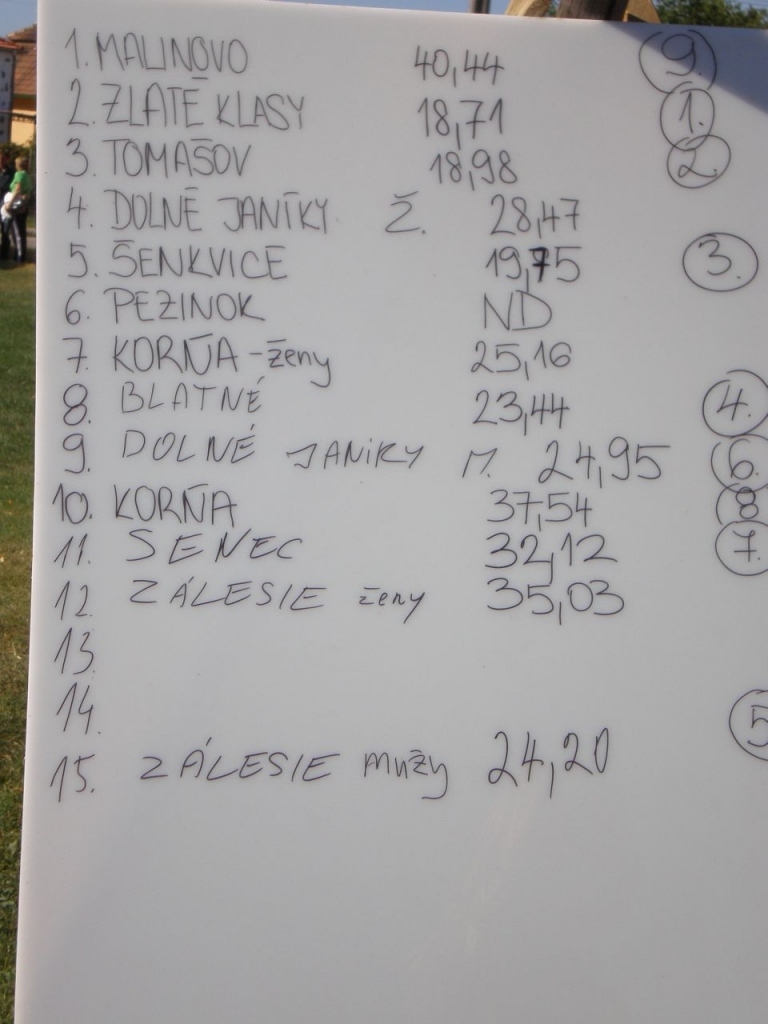 1. MALINOVO 40,44 9.
2. ZLATÉ KLASY 18,71 1.
3. TOMAŠOV 18,98 2.
4. DOLNÉ JANÍKY Ž. 28,47
5. ŠENKVICE 19,75 3.
6. PEZINOK ND
7. KORŇA - ženy 25,16
8. BLATNÉ 23,44 4.
9. DOLNÉ JANÍKY M. 24,95 6.
10. KORŇA 37,54 8
11. SENEC 32,12 7.
12. ZÁLESIE ženy 35,03
13.
14.
15. ZÁLESIE mužy 24,20 5